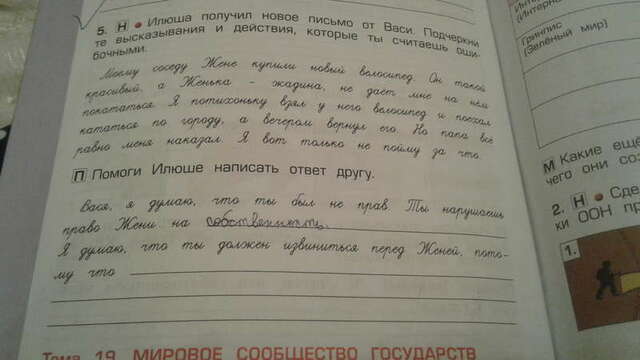 5. Н • Илюша получил новое письмо от Васи. Подчеркни
те высказывания и действия, которые ты считаешь оши-
бочными.
Моему соседу Жене купили новый велосипед. Он такой
красивый, а Женька - жадина, не даёт мне на нём
покататься. Я потихоньку взял у него велосипед и поехал
кататься по городу, а вечером вернул его. Но папа всё
равно меня наказал. Я вот только не пойму за что.
П Помоги Илюше написать ответ другу.
Вася, я думаю, что ты был не прав. Ты нарушаешь
право Жени на собственность.
Я думаю, что ты должен извиниться перед Женей, пото-
му что
Тема 19. МИРОВОЕ СООБЩЕСТВО ГОСУДАРСТВ
(Интерн
Гринпис
(Зелёный мир)
М Какие ещё
чего они со
2. Н • Сде
ки ООН пр
1.